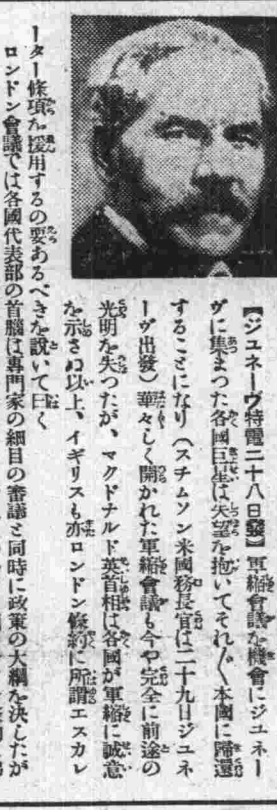 【ジュネーヴ特電二十八日發】軍縮會議を機會にジュネー
ヴに集まつた各國巨星は失望を抱いてそれ〴〵本國に歸還
することになり（スチムソン米國務長官は二十九日ジュネ
ーヴ出發）華々しく開かれた軍縮會議も今や完全に前途の
光明を失つたが、マクドナルド英首相は各國が軍縮に誠意
を示さぬ以上、イギリスも亦ロンドン條約に所謂エスカレ
ーター條項を援用するの要あるべきを說いて曰く
ロンドン會議では各國代表部の首腦は專門家の細目の審議と同時に政策の大綱を決したが